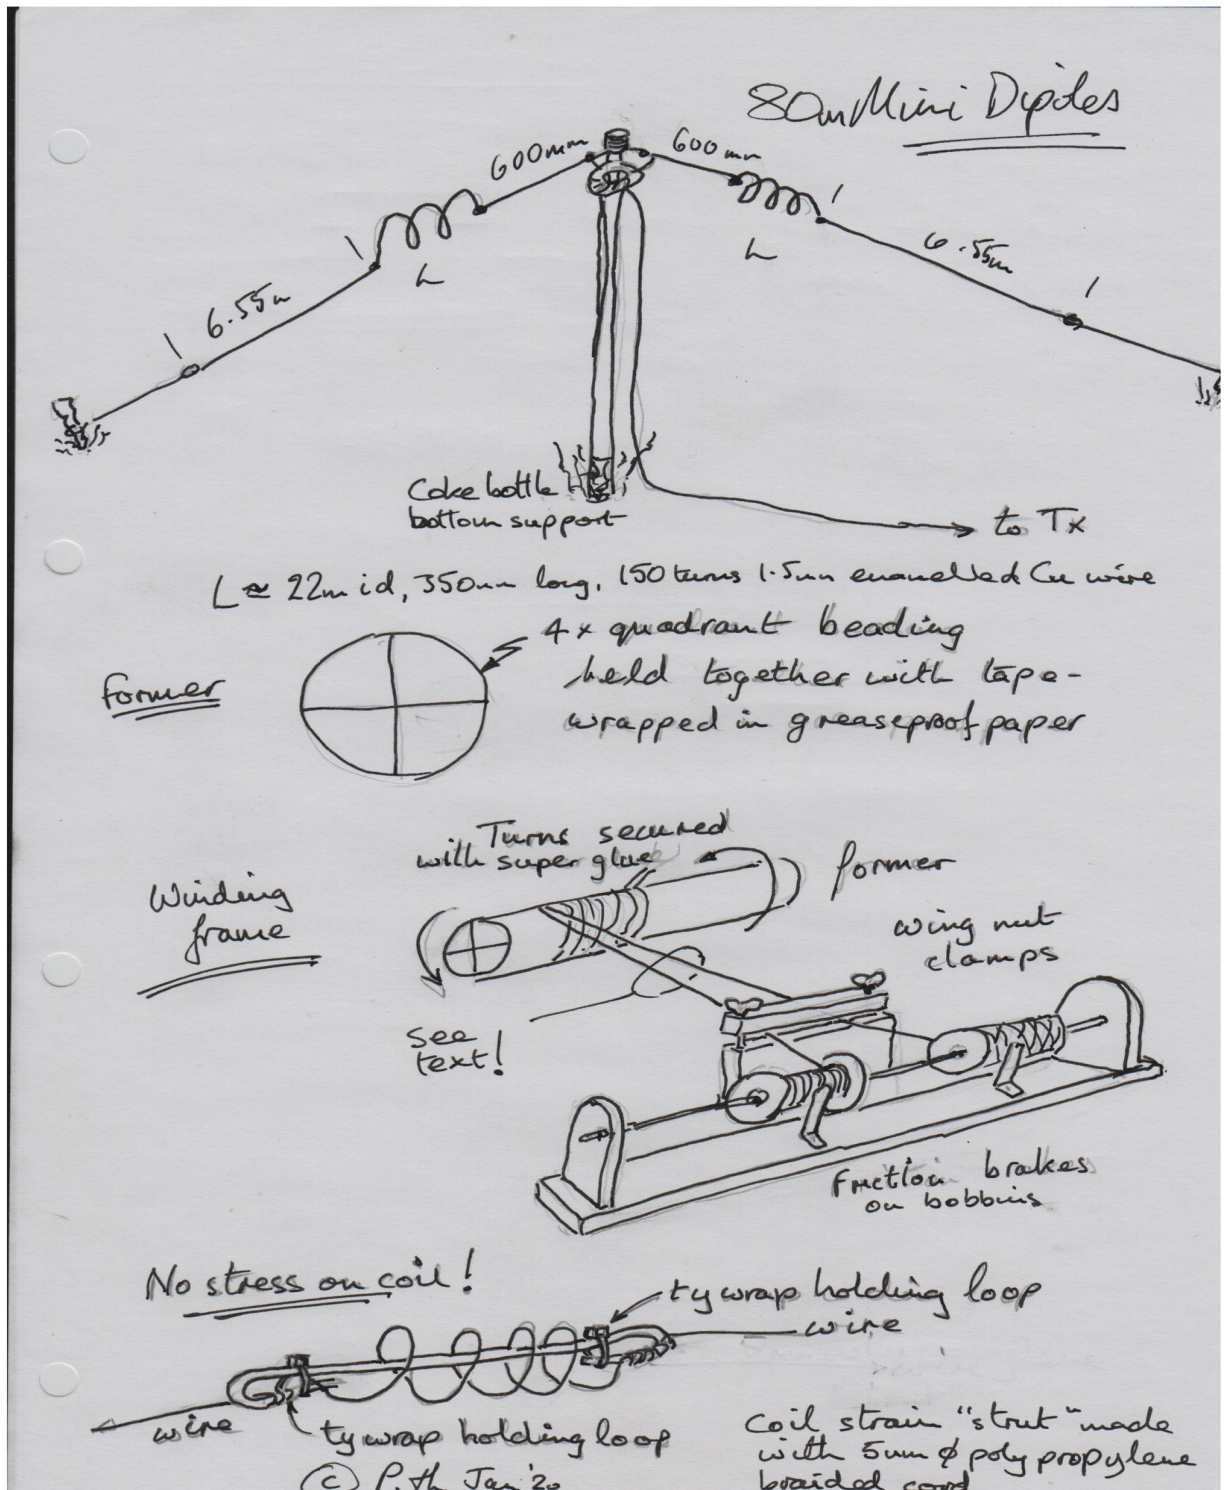 80m Mini Dipoles
600mm
600mm
L
L
6.55m
6.55m
Coke bottle
bottom support
to Tx
L ≈ 22m id, 350mm long, 150 turns 1.5mm enamelled Cu wire
Former
4x quadrant beading
held together with tape-
wrapped in greaseproof paper
Turns secured
with super glue
former
Winding
frame
wing nut
clamps
see
text!
Friction brakes
on bobbins
No stress on coil!
tywrap holding loop
wire
wire
tywrap holding loop
Coil strain "strut" made
with 5mm ϕ polypropylene
braided cord
© Jan '20